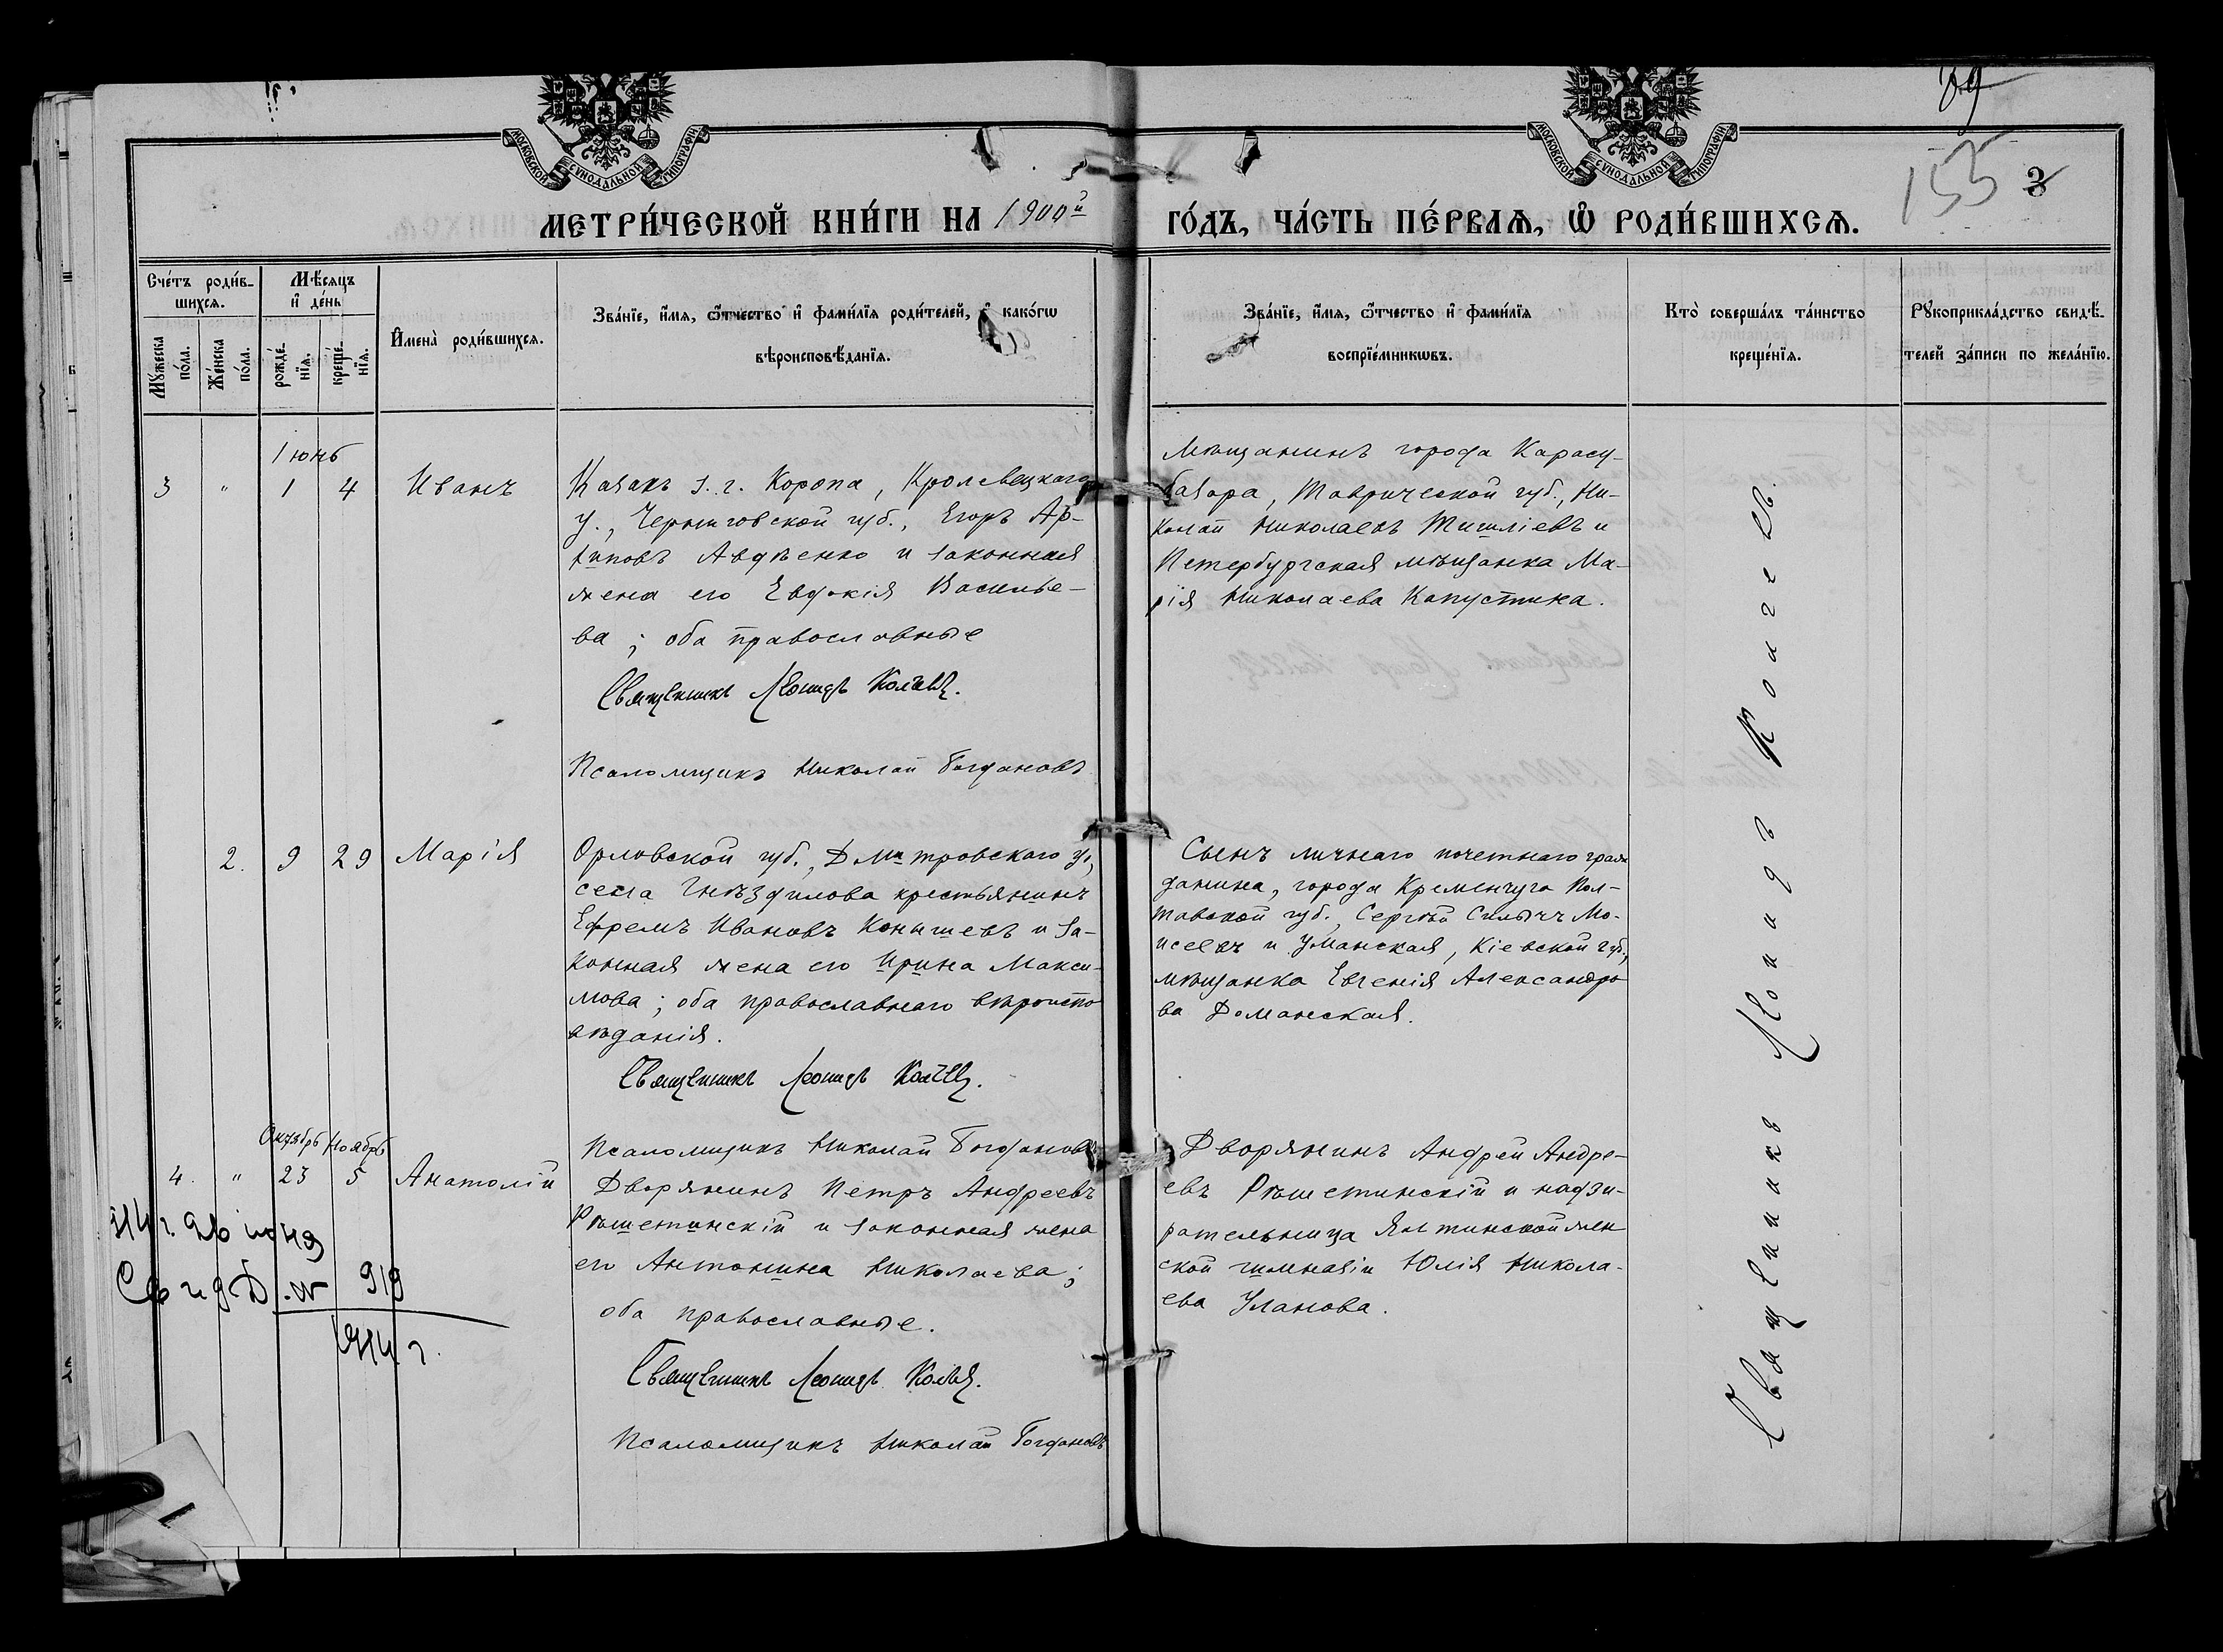 89
155
3
МОСКОВСКОЙ СѴНОДАЛЬНОЙ ТИПОГРАФІИ
МОСКОВСКОЙ СѴНОДАЛЬНОЙ ТИПОГРАФІИ
МЕТРИ́ЧЕСКОЙ КНИ́ГИ НА 1900й
ГО́ДЪ, ЧА́СТЬ ПЕ́РВАѦ, Ѡ҆ РОДИ́ВШИХСѦ.
Сче́тъ роди́в-
шихсѧ.
Мꙋ́жеска по́ла.
Же́нска по́ла.
Мѣ́сѧцъ
и҆ де́нь
рожде́-нїѧ.
креще́-нїѧ.
И҆мена̀ роди́вшихсѧ.
Зва́нїе, и҆́мѧ, ѻ҆́тчество и҆ фами́лїѧ роди́телей, и҆ како́гѡ
вѣроисповѣ́данїѧ.
Зва́нїе, и҆́мѧ, ѻ҆́тчество и҆ фами́лїѧ
воспрїе́мникѡвъ.
Кто̀ соверша́лъ та́инство
креще́нїѧ.
Рꙋкоприкла́дство свидѣ́-
телей за́писи по жела́нїю.
Іюнь
3 " 1 4 Иванъ
Казакъ з. г. Коропа, Кролевецкаго
у., Черниговской губ., Егоръ Ар-
хиповъ Авдѣенко и законная
жена его Евдокія Василье-
ва; оба православные
Священникъ Леонидъ Колчевъ.
Псаломщикъ Николай Богдановъ
Мѣщанинъ города Карасу-
базара, Таврической губ., Ни-
колай Николаевъ Тишліевъ и
Петербургская мѣщанка Ма-
рія Николаева Капустина.
2. 9 29 Марія
Орловской губ., Дмитровскаго у.,
села Гнѣздилова крестьянинъ
Ефремъ Ивановъ Конышевъ и за-
конная жена его Ирина Макси-
мова; оба православнаго вѣроиспо
вѣданія.
Священникъ Леонидъ Колчевъ.
Псаломщикъ Николай Богдановъ
Сынъ личнаго почетнаго граж
данина, города Кременчуга Пол-
тавской губ., Сергѣй Силычъ Мо-
исеевъ и Уманская, Кіевской губ.,
мѣщанка Евгенія Александро
ва Доманская.
Октябрь Ноябрь
4. " 23 5 Анатолій
914 г. 26 іюня
Свид. № 919
1914 г.
Дворянинъ Петръ Андреевъ
Рѣшетинскій и законная жена
его Антонина Николаева;
оба православные.
Священникъ Леонидъ Колчевъ.
Псаломщикъ Николай Богдановъ
Дворянинъ Андрей Андре-
евъ Рѣшетинскій и надзи-
рательница Ялтинской жен
ской гимназіи Юлія Никола-
ева Уланова.
Священникъ Леонидъ Колчевъ.